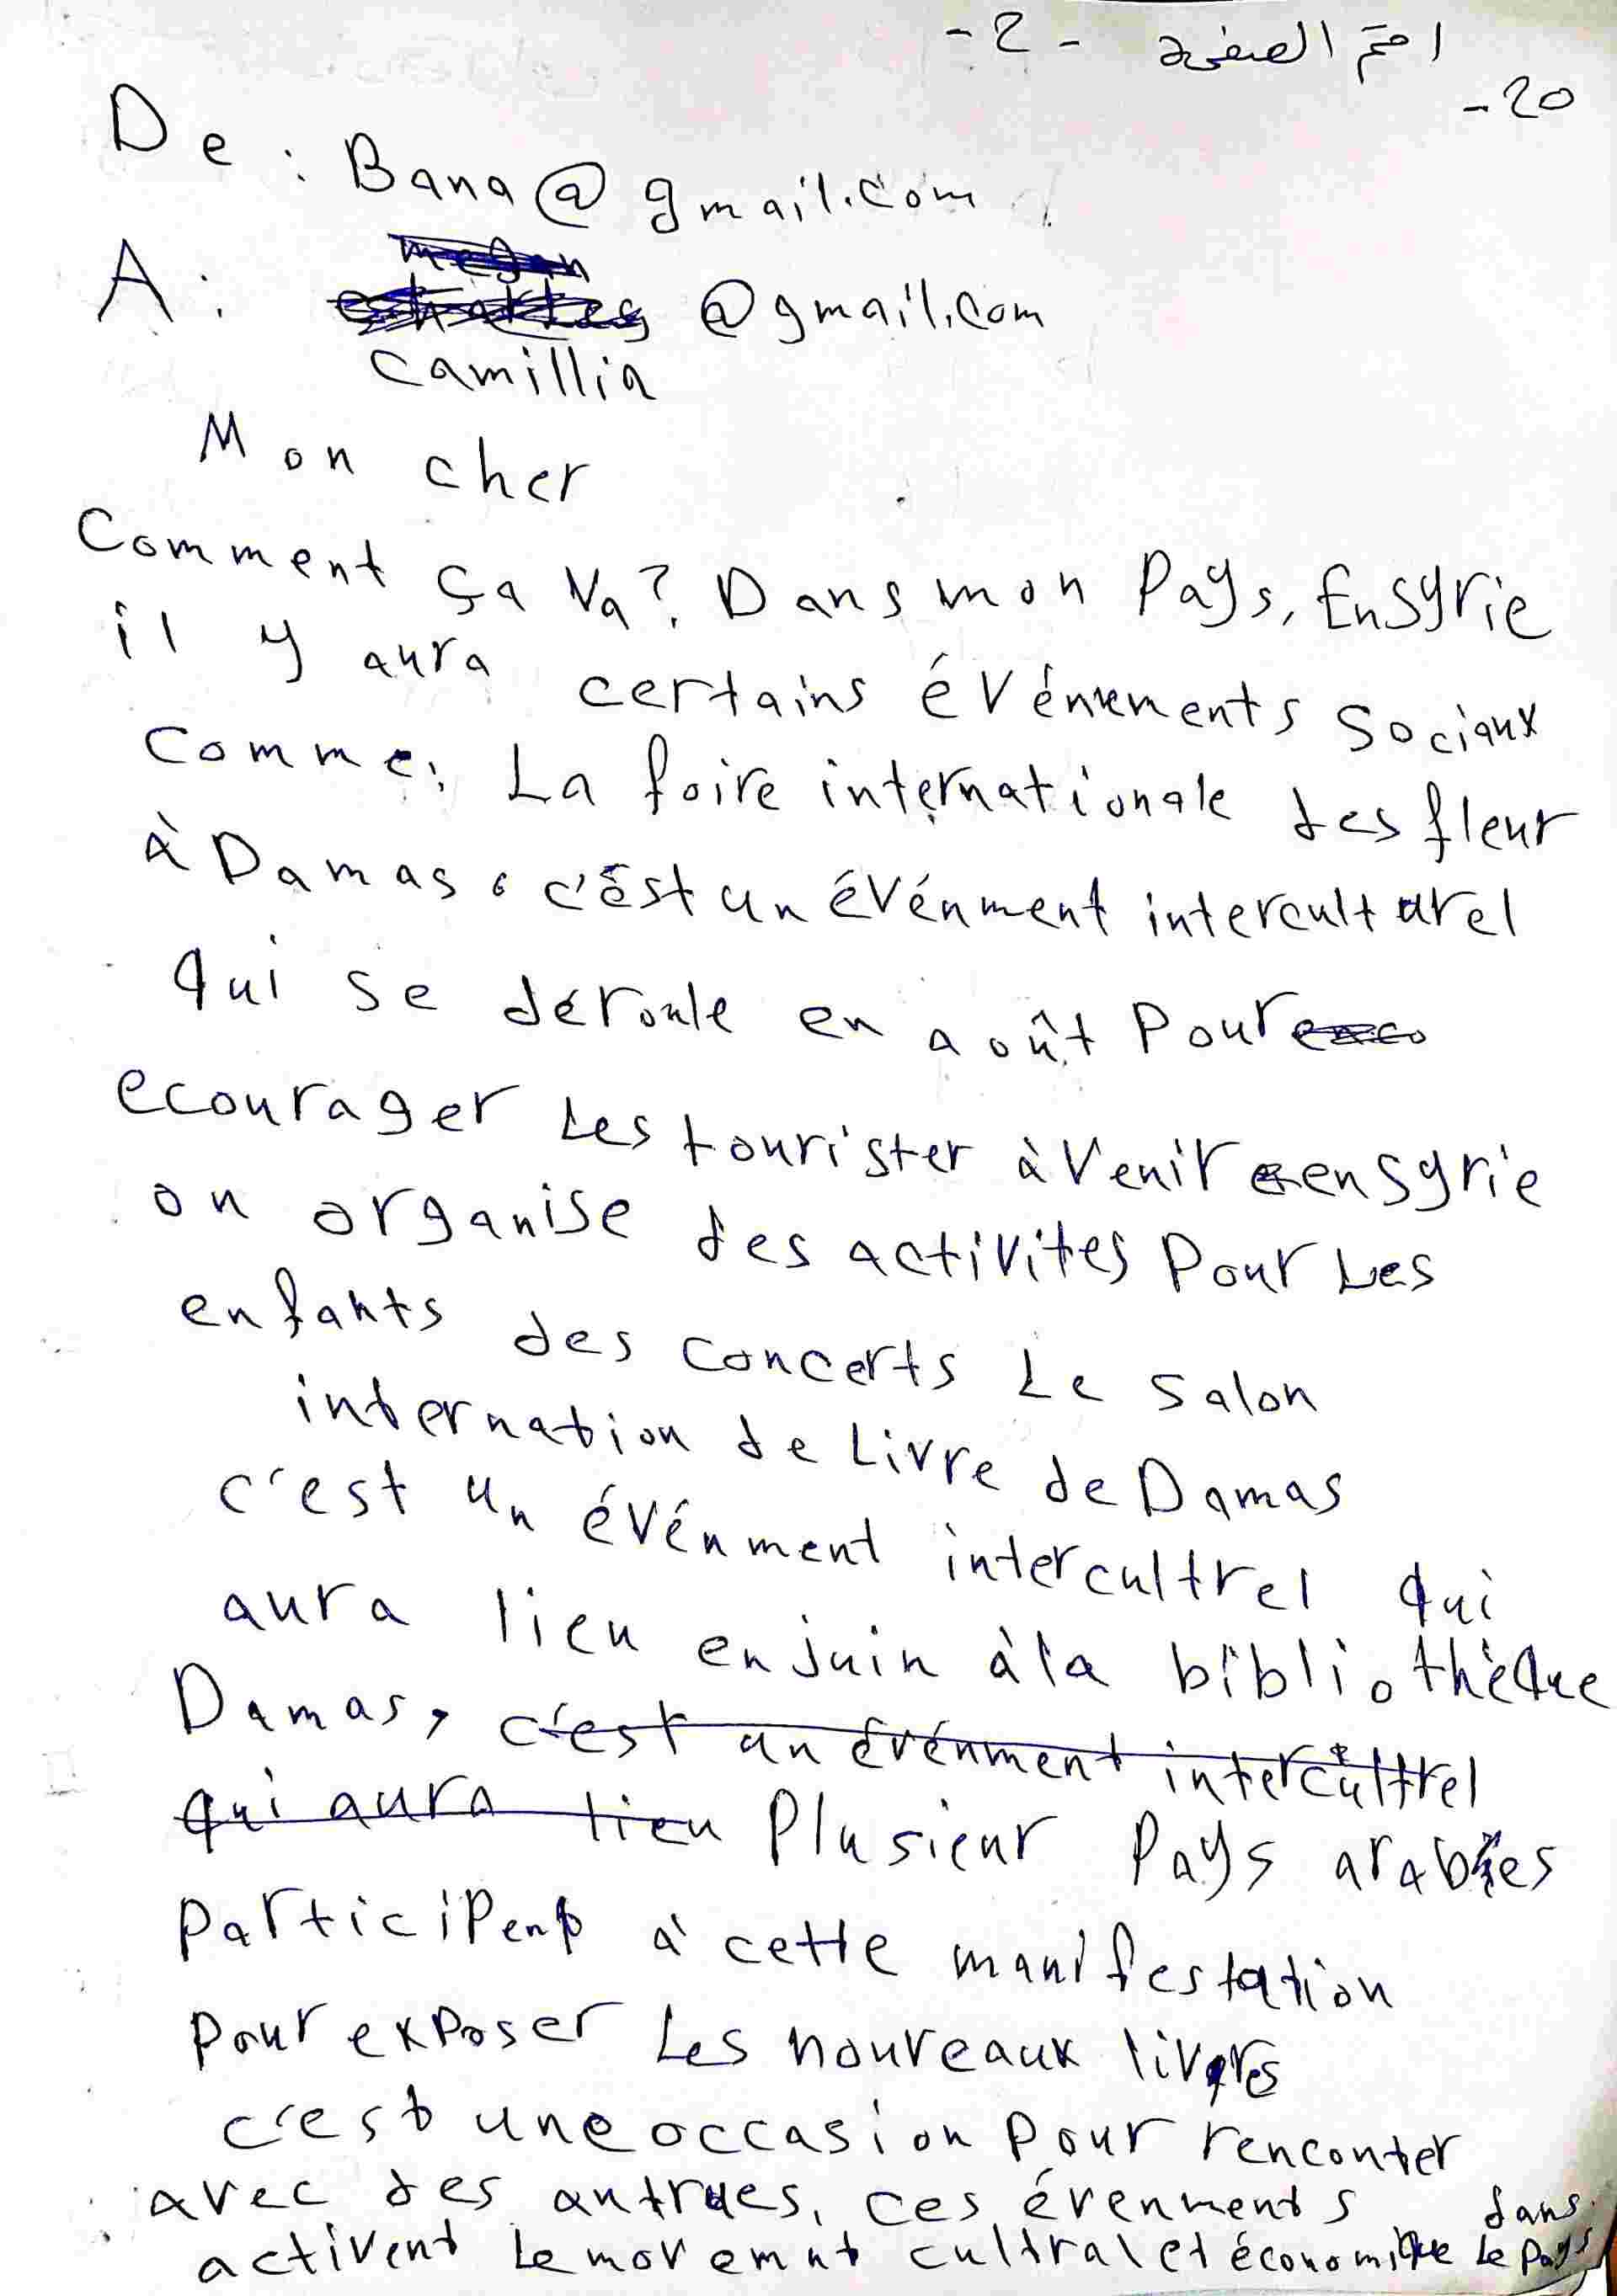 اختم الصفحة - 2 -
20-
De : Bana@gmail.com
A : @gmail.com
camillia
Mon cher
Comment ça va? Dans mon Pays, En Syrie
il y aura certains événements Sociaux
Comme: La foire internationale des fleur
à Damas. c'est un événment interculturel
qui se déroule en août Pour
ecourager Les tourister à venir en Syrie
on organise des activites Pour Les
enfants des concerts Le salon
internation de Livre de Damas
c'est un événment intercultrel qui
aura lieu en juin à la bibliothèque
Damas, c'est un événment intercultrel
qui aura lieu Plusieur Pays arabes
participent à cette manifestation
Pour exposer Les nouveaux livres
c'est une occasion Pour renconter
avec des antrues. ces évenments dans
activent Le movemnt cultral et économique Le pays